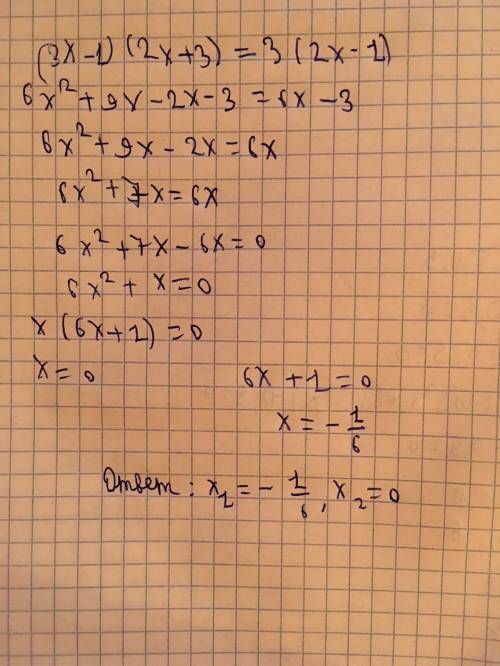 (3x-1)(2x+3)=3(2x-1)
6x²+9x-2x-3=6x-3
6x²+9x-2x=6x
6x²+7x=6x
6x²+7x-6x=0
6x²+x=0
x(6x+1)=0
x=0 6x+1=0
x=-1/6
Ответ: x₁=-1/6, x₂=0